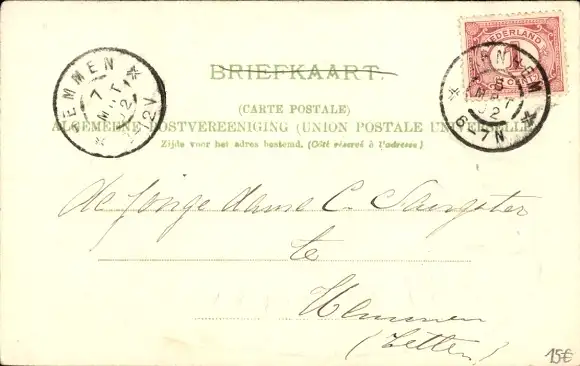 NEDERLAND
1
CENT
ARNHEM
8
MRT
02
6-7N
HEMMEN
7
MRT
02
12V
BRIEFKAART.
(CARTE POSTALE)
ALGEMEENE POSTVEREENIGING (UNION POSTALE UNIVERSELLE)
Zijde voor het adres bestemd. (Côté réservé à l'adresse)
de jonge dame C. Sangster
te
Hemmen
(Zetten)
15€